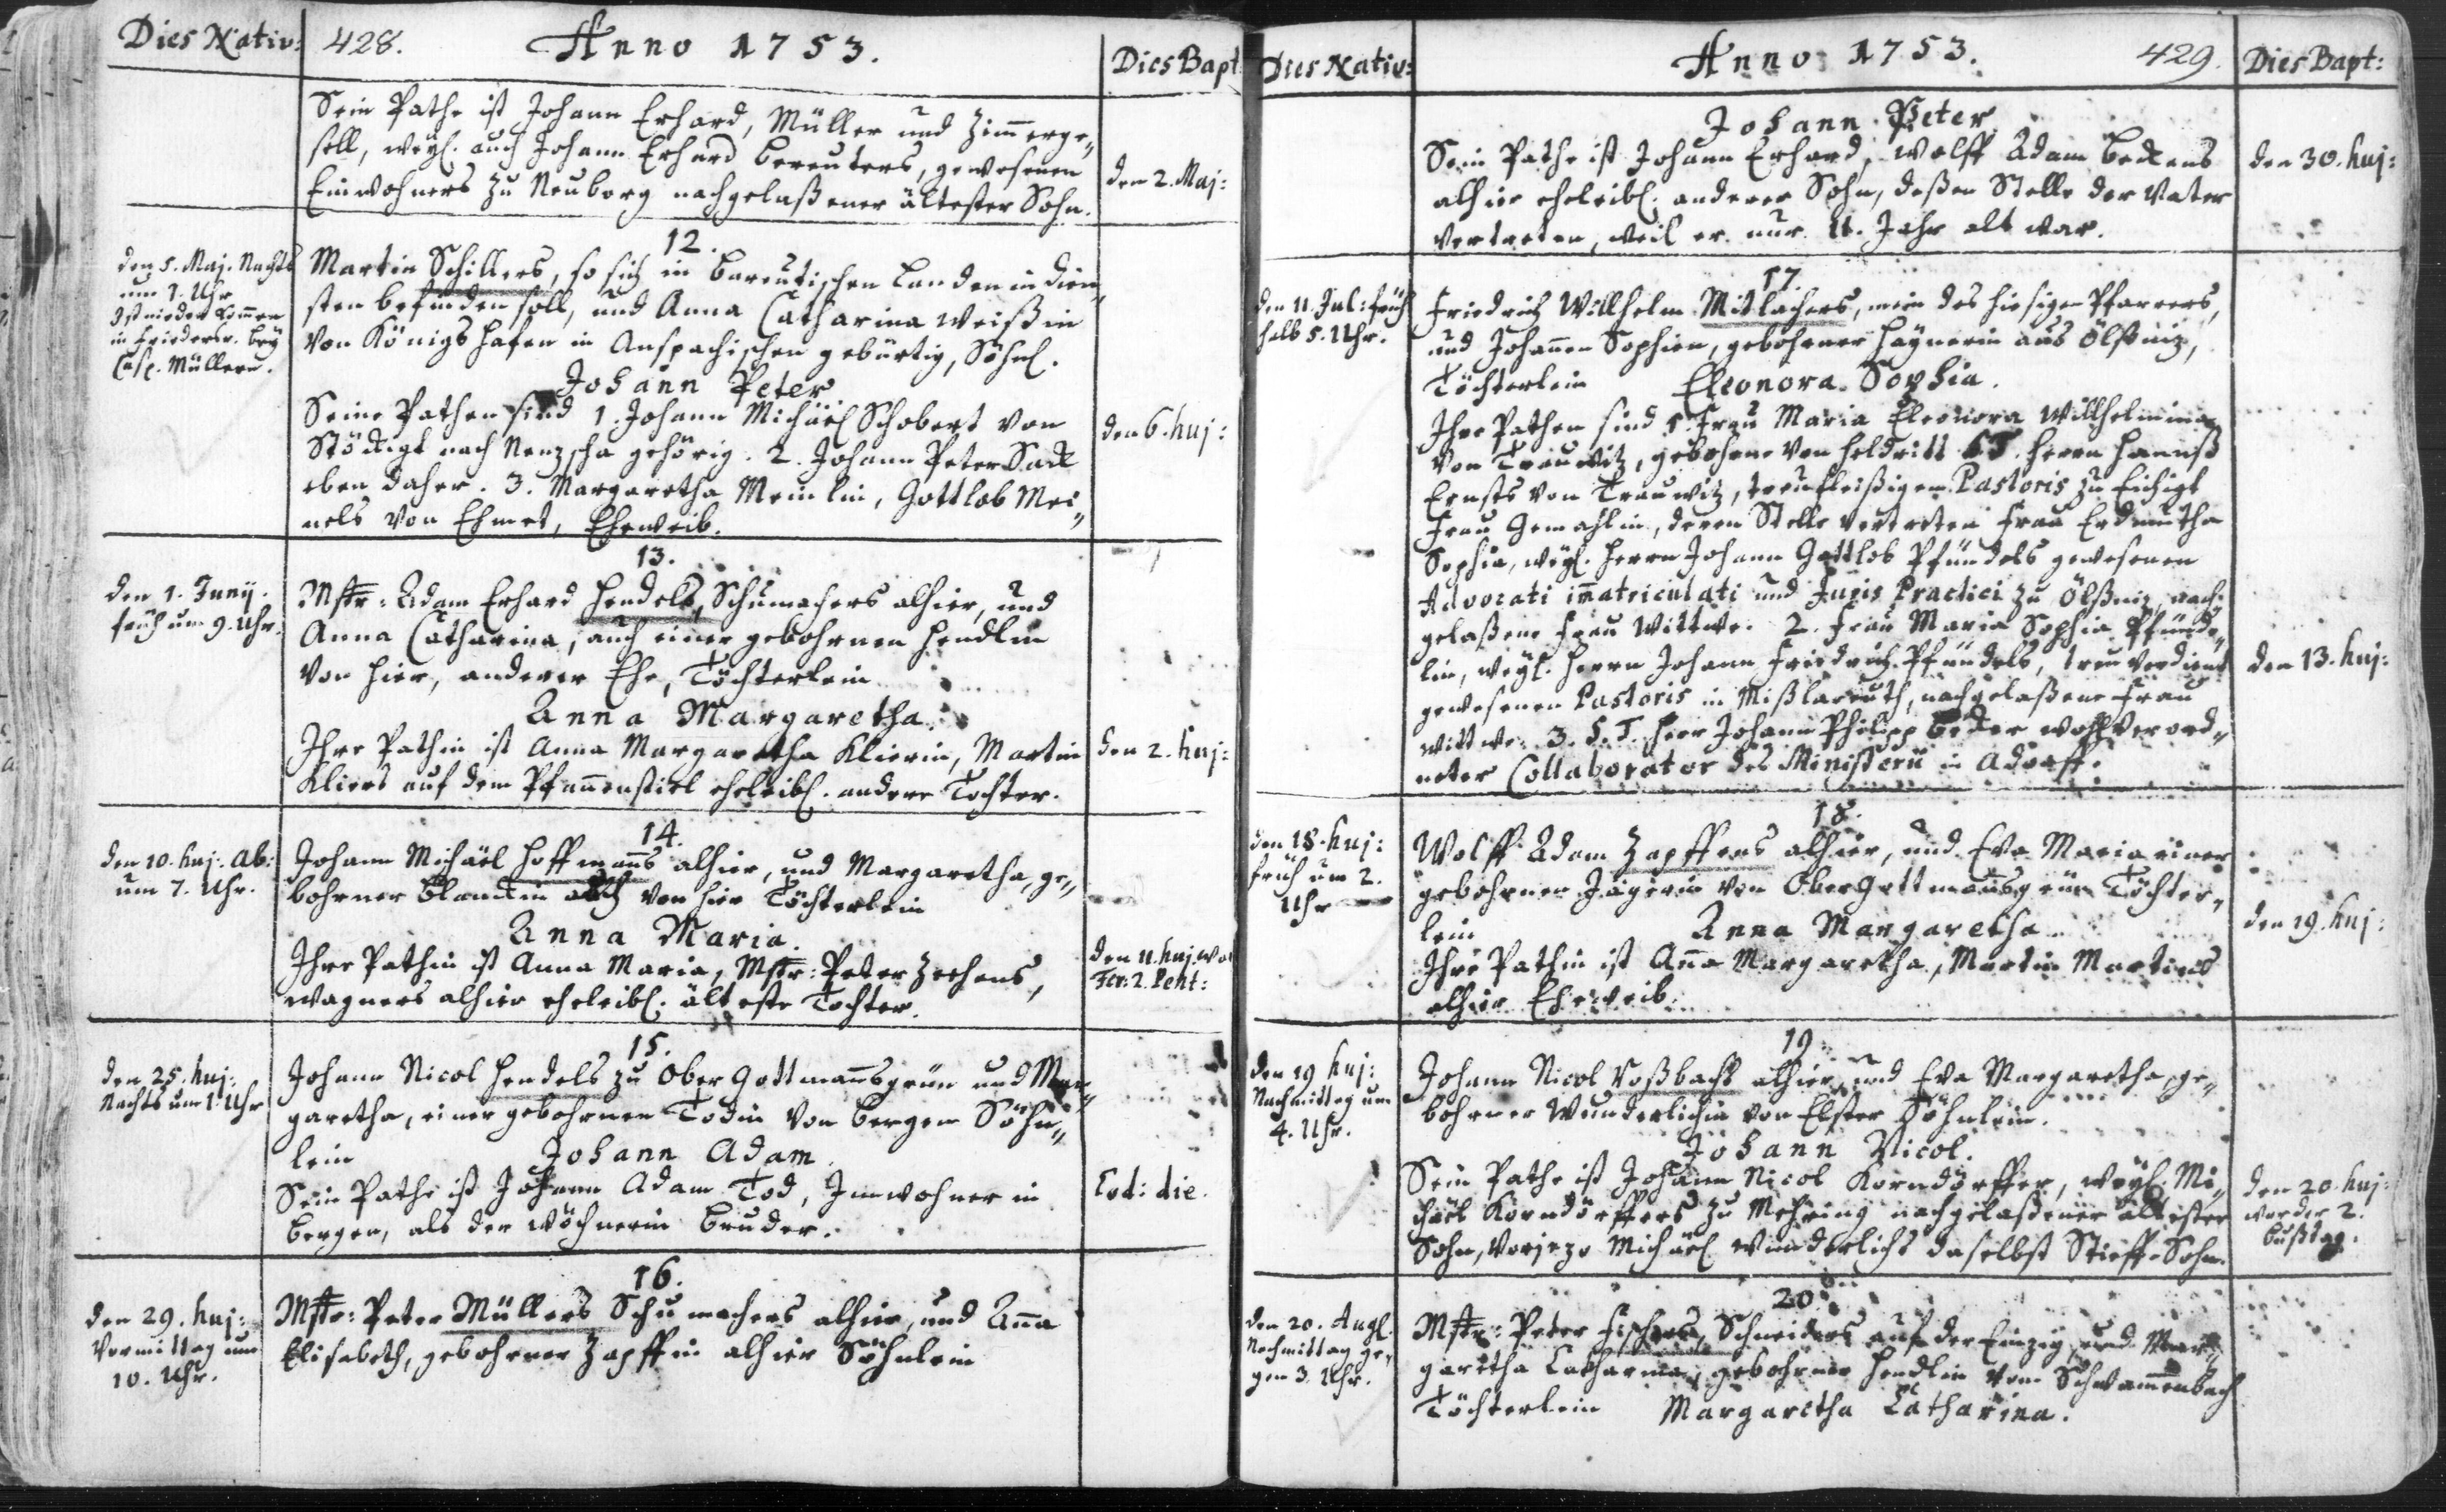 Dies Nativ: 428. Anno 1753. Dies Bapt
Sein Pathe ist Johann Erhard, Müller und Zimmerge-
sell, weyl. auch Johann Erhard Bereuters, gewesenen
Einwohners zu Neuberg nachgelaßener ältester Sohn.
den 2. Maj:
12.
den 5. Maj. Nachts
um 1. Uhr
Ist nieder kommen
in Friedersr. bey
Casp. Müllern.
Martin Schillers, so sich in Bareutischen Landen in Dien-
sten befinden soll, und Anna Catharina Weißin
von Königshofen in Anspachischen gebürtig, Söhnl.
Johann Peter
Seine Pathen sind 1. Johann Michäel Schobert von
Stöckigt nach Nenzscha gehörig. 2. Johann Peter Sack
eben daher. 3. Margaretha Meinlin, Gottlob Mei-
nels von Ehmet, Eheweib.
den 6. huj:
13.
den 1. Junij.
früh um 9. Uhr.
Mstr: Adam Erhard Hendels, Schumachers alhier, und
Anna Catharina, auch einer gebohrnen Hendlin
von hier, anderer Ehe, Töchterlein
Anna Margaretha.
Ihre Pathin ist Anna Margaretha Klierin, Martin
Kliers auf dem Pfannenstiel eheleibl. andere Tochter.
den 2. huj:
14.
den 10. huj: Ab:
um 7. Uhr.
Johann Michäel Hoffmanns alhier, und Margaretha, ge-
bohrner Blanckin auch von hier Töchterlein
Anna Maria.
Ihre Pathin ist Anna Maria, Mstr: Peter Zechens,
Wagners alhier eheleibl. älteste Tochter.
den 11. huj. war
Fer: 2. Pent:
15.
den 25. huj:
Nachts um 1. Uhr
Johann Nicol Hendels zu Ober Gottmannsgrün und Mar-
garetha, einer gebohrnen Todin von Bergen Söhn-
lein Johann Adam.
Sein Pathe ist Johann Adam Tod, Innwohner in
Bergen, als der Wöchnerin Bruder.
Eod: die.
16.
den 29. huj:
Vormittag um
10. Uhr.
Mstr: Peter Müllers Schumachers alhier, und Anna
Elisabeth, gebohrner Zapffin alhier Söhnlein
Dies Nativ: Anno 1753. 429. Dies Bapt:
Johann Peter
Sein Pathe ist Johann Erhard, Wolff Adam Beckens
alhier eheleibl. anderer Sohn, deßen Stelle der Vater
vertreten, weil er nur 11. Jahr alt war.
den 30. huj:
17.
den 11. Jul: früh
halb 5. Uhr.
Friedrich Willhelm Mitlachers, mein des hiesigen Pfarrers,
und Johannen Sophien, gebohrner Haynerin aus Ölßniz,
Töchterlein Eleonora Sophia.
Ihre Pathen sind 1. Frau Maria Eleonora Willhelmina
von Trauwitz, gebohrne von Heldritt S.T. Herrn Hannß
Ernsts von Trauwitz, treufleißigen Pastoris zu Eichigt
Frau Gemahlin, deren Stelle vertreten Frau Erdmutha
Sophia, weyl. Herrn Johann Gottlob Pfündels gewesenen
Advocati immatriculati und Juris Practici zu Ölßniz, nach-
gelaßene Frau Wittwe. 2. Frau Maria Sophia Pfünde-
lin, weyl. Herrn Johann Friedrich Pfündels, treu verdient
gewesenen Pastoris in Mißlareuth, nachgelaßene Frau
Wittwe. 3. S.T. Herr Johann Philipp Becker wohlverord-
neter Collaborator des Ministerii in Adorff.
den 13. huj:
18.
den 18. huj:
früh um 2.
Uhr
Wolff Adam Zapffens alhier, und Eva Maria einer
gebohrnen Jägerin von Ober Gottmannsgrün Töchter-
lein Anna Margaretha
Ihre Pathin ist Anna Margaretha, Martin Martins
alhier Eheweib.
den 19. huj:
19.
den 19 huj:
Nachmittag um
4. Uhr.
Johann Nicol Voßbachs alhier, und Eva Margaretha, ge-
bohrner Wunderlichin von Elster Söhnlein.
Johann Nicol.
Sein Pathe ist Johann Nicol Korndörffer, weyl. Mi-
chäel Korndörffers zu Mehring nachgelaßener ältester
Sohn, vorjezo Michäel Wunderlichs daselbst Stieff-Sohn.
den 20. huj:
war der 2.
Bußtag.
20.
den 20. Augl.
Nachmittag ge-
gen 3. Uhr.
Mstr: Peter Fischers, Schneiders auf der Einzig, und Mar-
garetha Catharina, gebohrner Hendlin vom Schwammenbach
Töchterlein Margaretha Catharina.